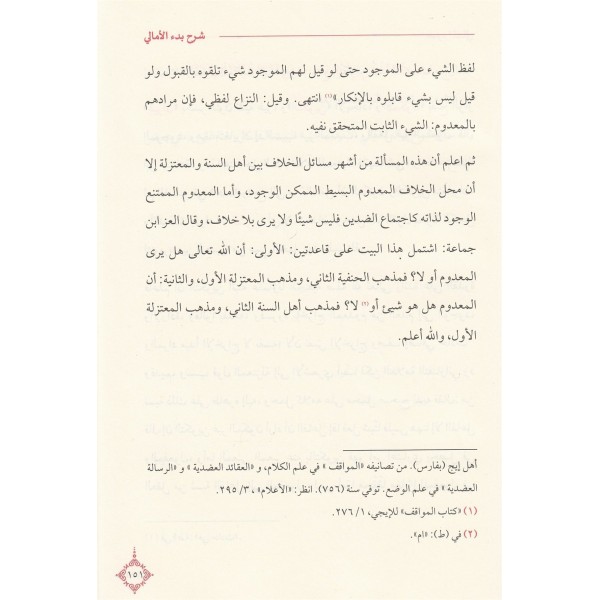 شرح بدء الأمالي
لفظ الشيء على الموجود حتى لو قيل لهم الموجود شيء تلقوه بالقبول ولو
قيل ليس بشيء قابلوه بالإنكار»(١) انتهى. وقيل: النزاع لفظي، فإن مرادهم
بالمعدوم: الشيء الثابت المتحقق نفيه.
ثم اعلم أن هذه المسألة من أشهر مسائل الخلاف بين أهل السنة والمعتزلة إلا
أن محل الخلاف المعدوم البسيط الممكن الوجود، وأما المعدوم الممتنع
الوجود لذاته كاجتماع الضدين فليس شيئًا ولا يرى بلا خلاف، وقال العز ابن
جماعة: اشتمل هذا البيت على قاعدتين: الأولى: أن الله تعالى هل يرى
المعدوم أو لا؟ فمذهب الحنفية الثاني، ومذهب المعتزلة الأول، والثانية: أن
المعدوم هل هو شيئ أو(٢) لا؟ فمذهب أهل السنة الثاني، ومذهب المعتزلة
الأول، والله أعلم.
أهل إيج (بفارس). من تصانيفه «المواقف» في علم الكلام، و «العقائد العضدية » و «الرسالة
العضدية » في علم الوضع. توفي سنة (٧٥٦). انظر: «الأعلام» ، ٣/ ٢٩٥.
(١) «كتاب المواقف» للإيجي، ١/ ٢٧٦.
(٢) في (ط): «ام».
١٥١